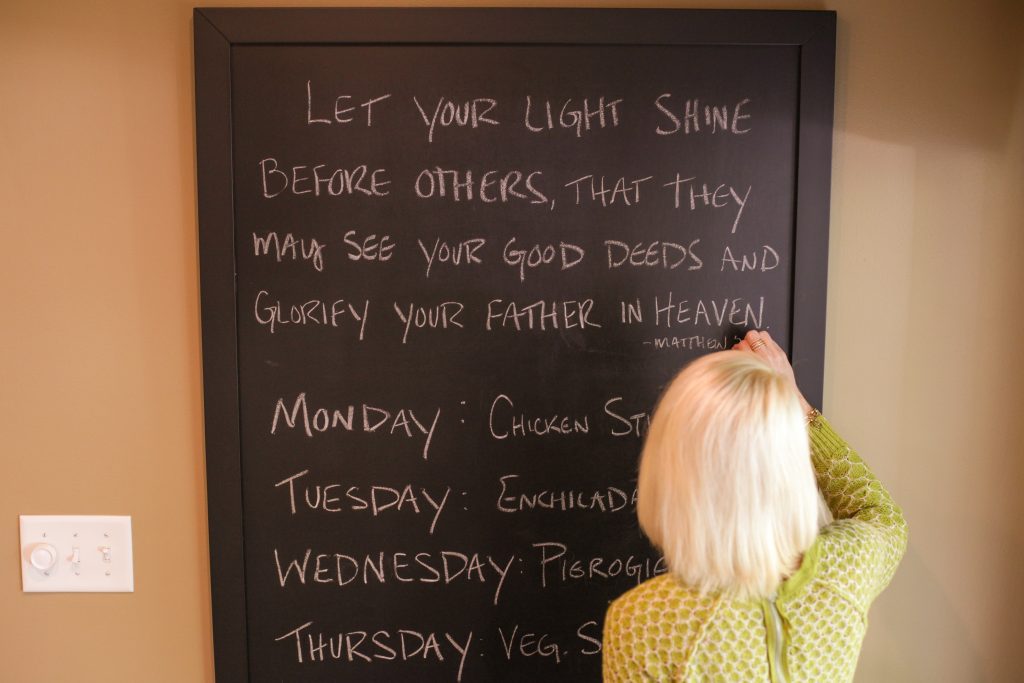 LET YOUR LIGHT SHINE
BEFORE OTHERS, THAT THEY
MAY SEE YOUR GOOD DEEDS AND
GLORIFY YOUR FATHER IN HEAVEN.
-MATTHEW
MONDAY: CHICKEN
TUESDAY: ENCHILADA
WEDNESDAY: PIEROGIE
THURSDAY: VEG.